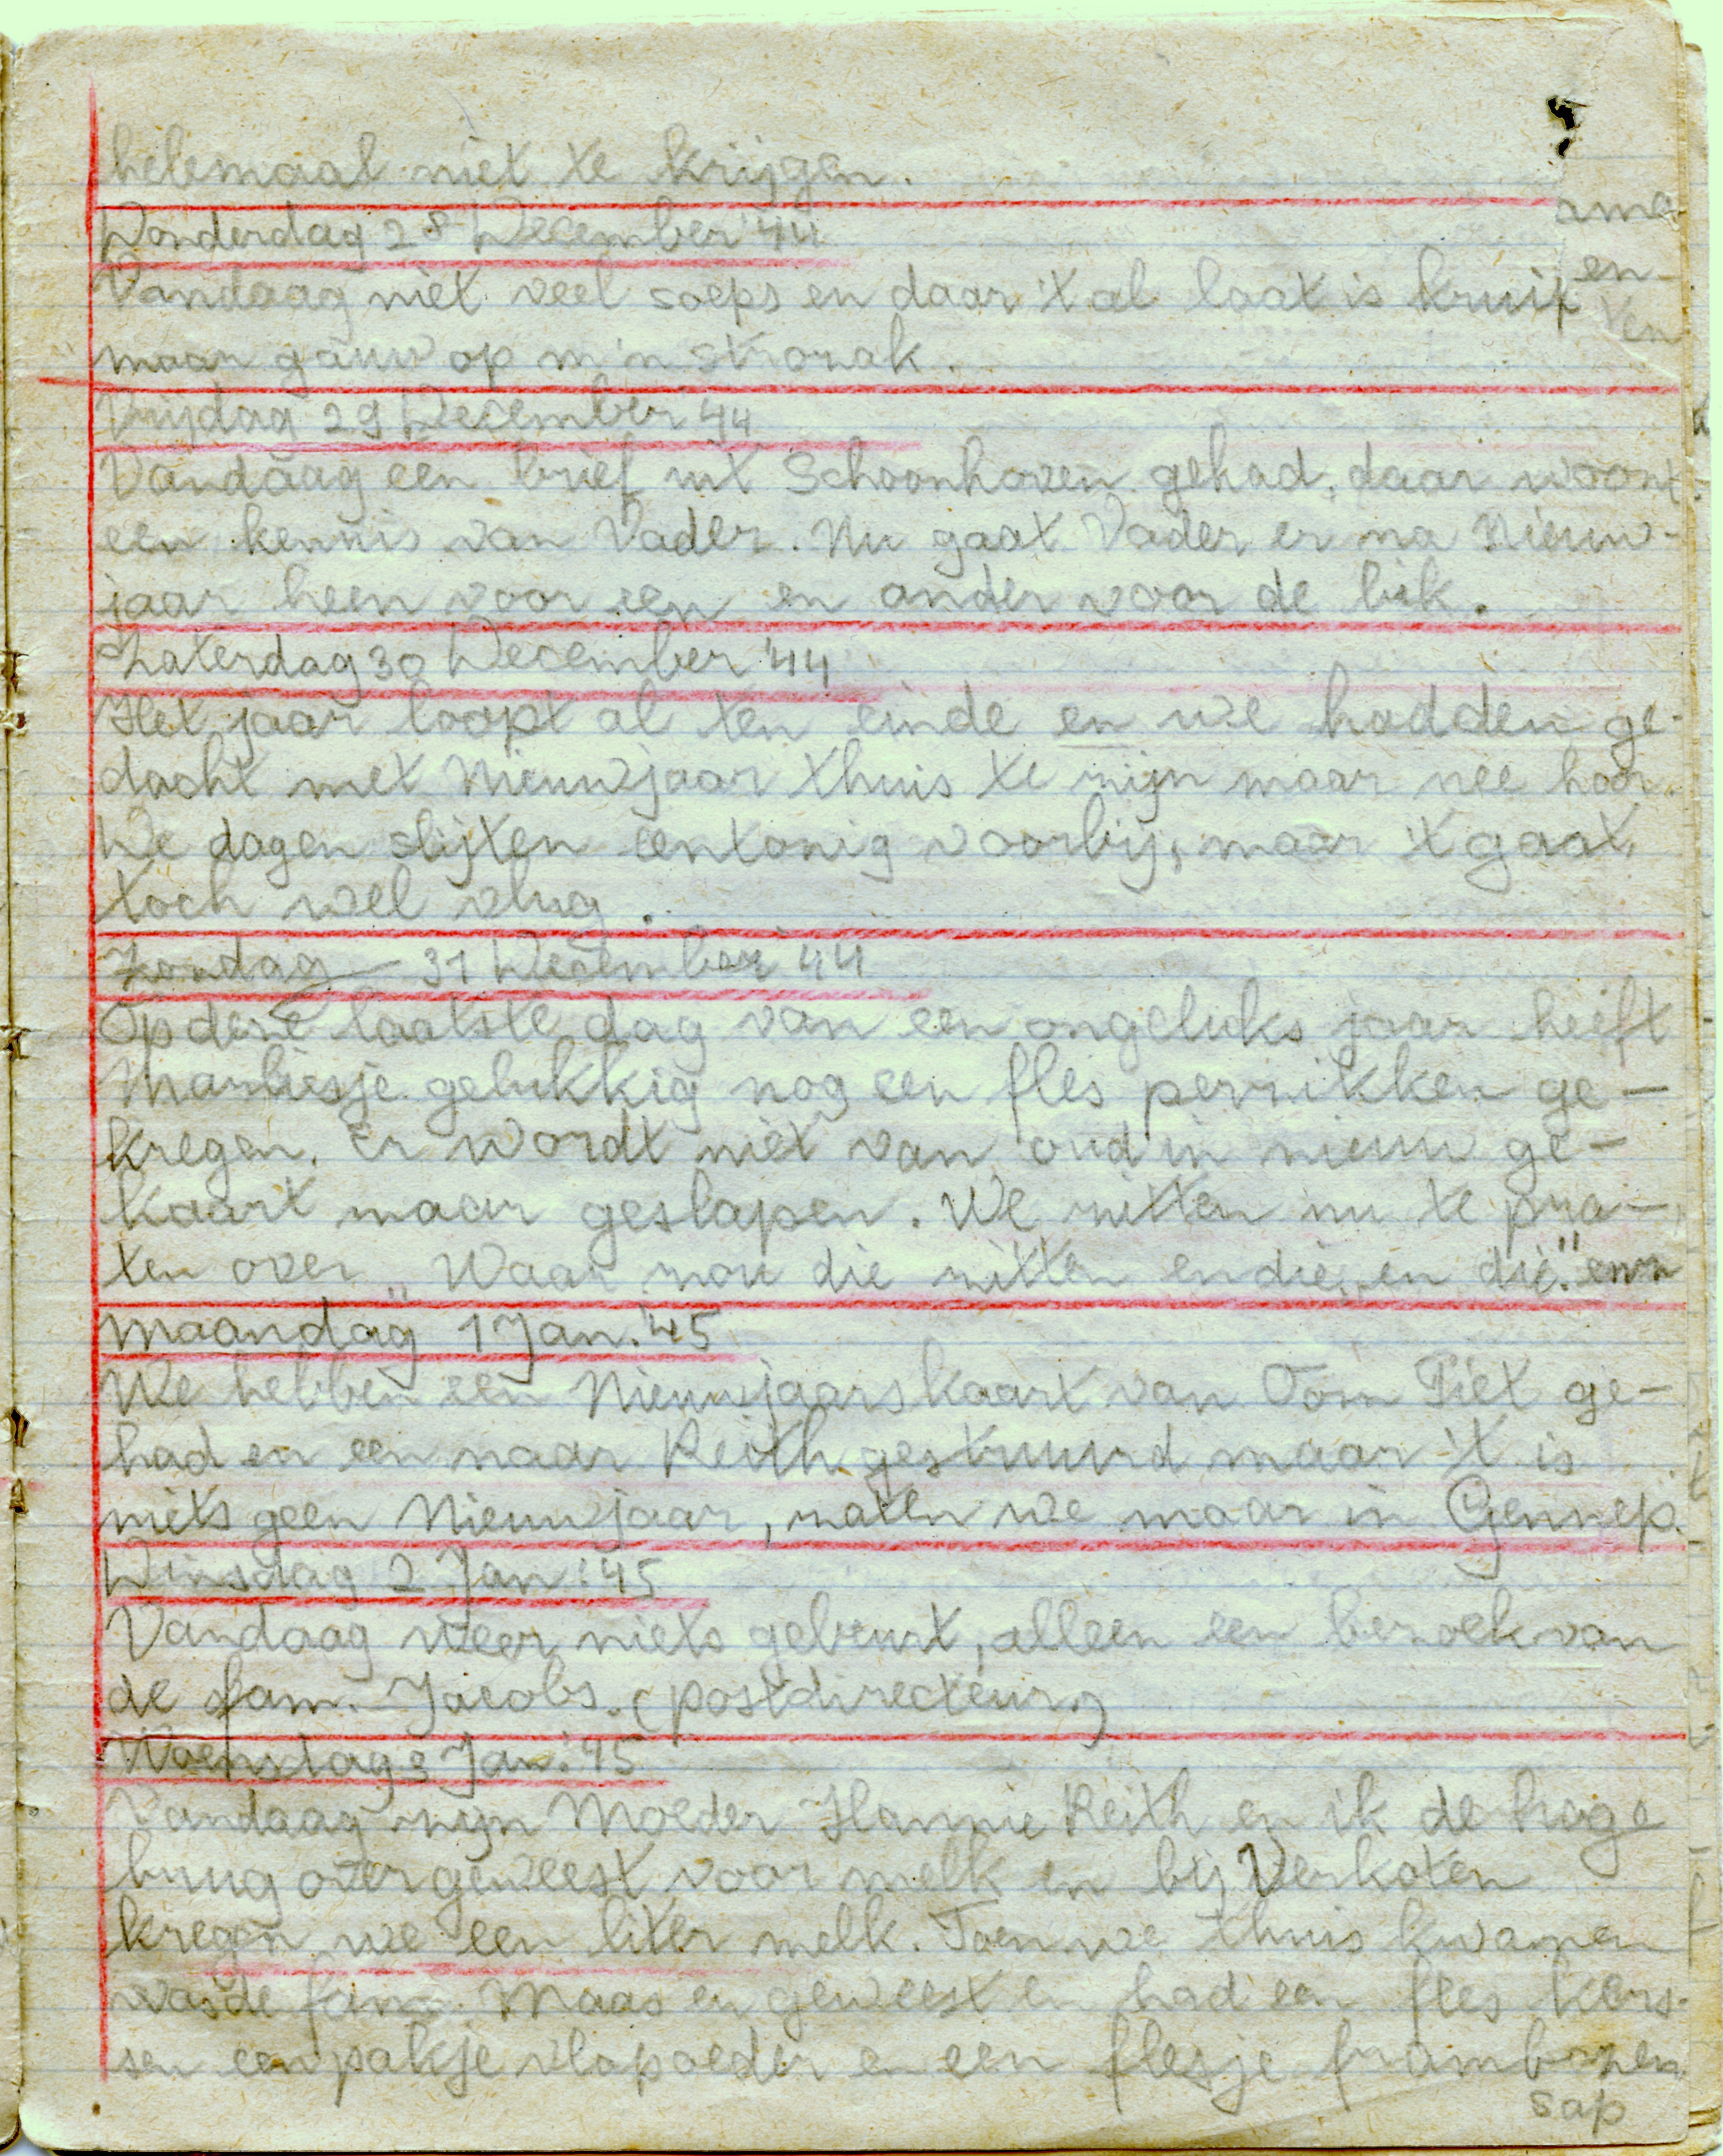 helemaal niet te krijgen.
Donderdag 28 December '44
Vandaag niet veel soeps en daar 't al laat is kruip
maar gauw op m'n strozak.
Vrijdag 29 December '44
Vandaag een brief uit Schoonhoven gehad, daar woont
een kennis van Vader. Nu gaat Vader er na Nieuw-
jaar heen voor een en ander voor de bik.
Zaterdag 30 December '44
Het jaar loopt al ten einde en we hadden ge-
dacht met Nieuwjaar thuis te zijn maar nee hoor.
De dagen slijten eentonig voorbij, maar 't gaat
toch wel vlug.
Zondag 31 December '44
Op deze laatste dag van een ongeluks jaar heeft
Marliesje gelukkig nog een fles perzikken ge-
kregen. Er wordt niet van oud in nieuw ge-
kaart maar geslapen. We zitten nu te pra-
ten over „Waar zou die zitten en die, en die." enz
Maandag 1 Jan. '45
We hebben een Nieuwjaarskaart van Oom Piet ge-
had en een naar Reith gestuurd maar 't is
niets geen Nieuwjaar, zaten we maar in Gennep.
Dinsdag 2 Jan. '45
Vandaag weer niets gebeurt, alleen een bezoek van
de fam. Jacobs. (postdirecteur)
Woensdag 3 Jan. '45
Vandaag zijn Moeder Hannie Reith en ik de hoge
brug over geweest voor melk en bij Verkoten
kregen we een liter melk. Toen we thuis kwamen
was de fam. Maas er geweest en had een fles kers-
sen een pakje vlapoeder en een flesje frambozen
sap
ame
en-
ten